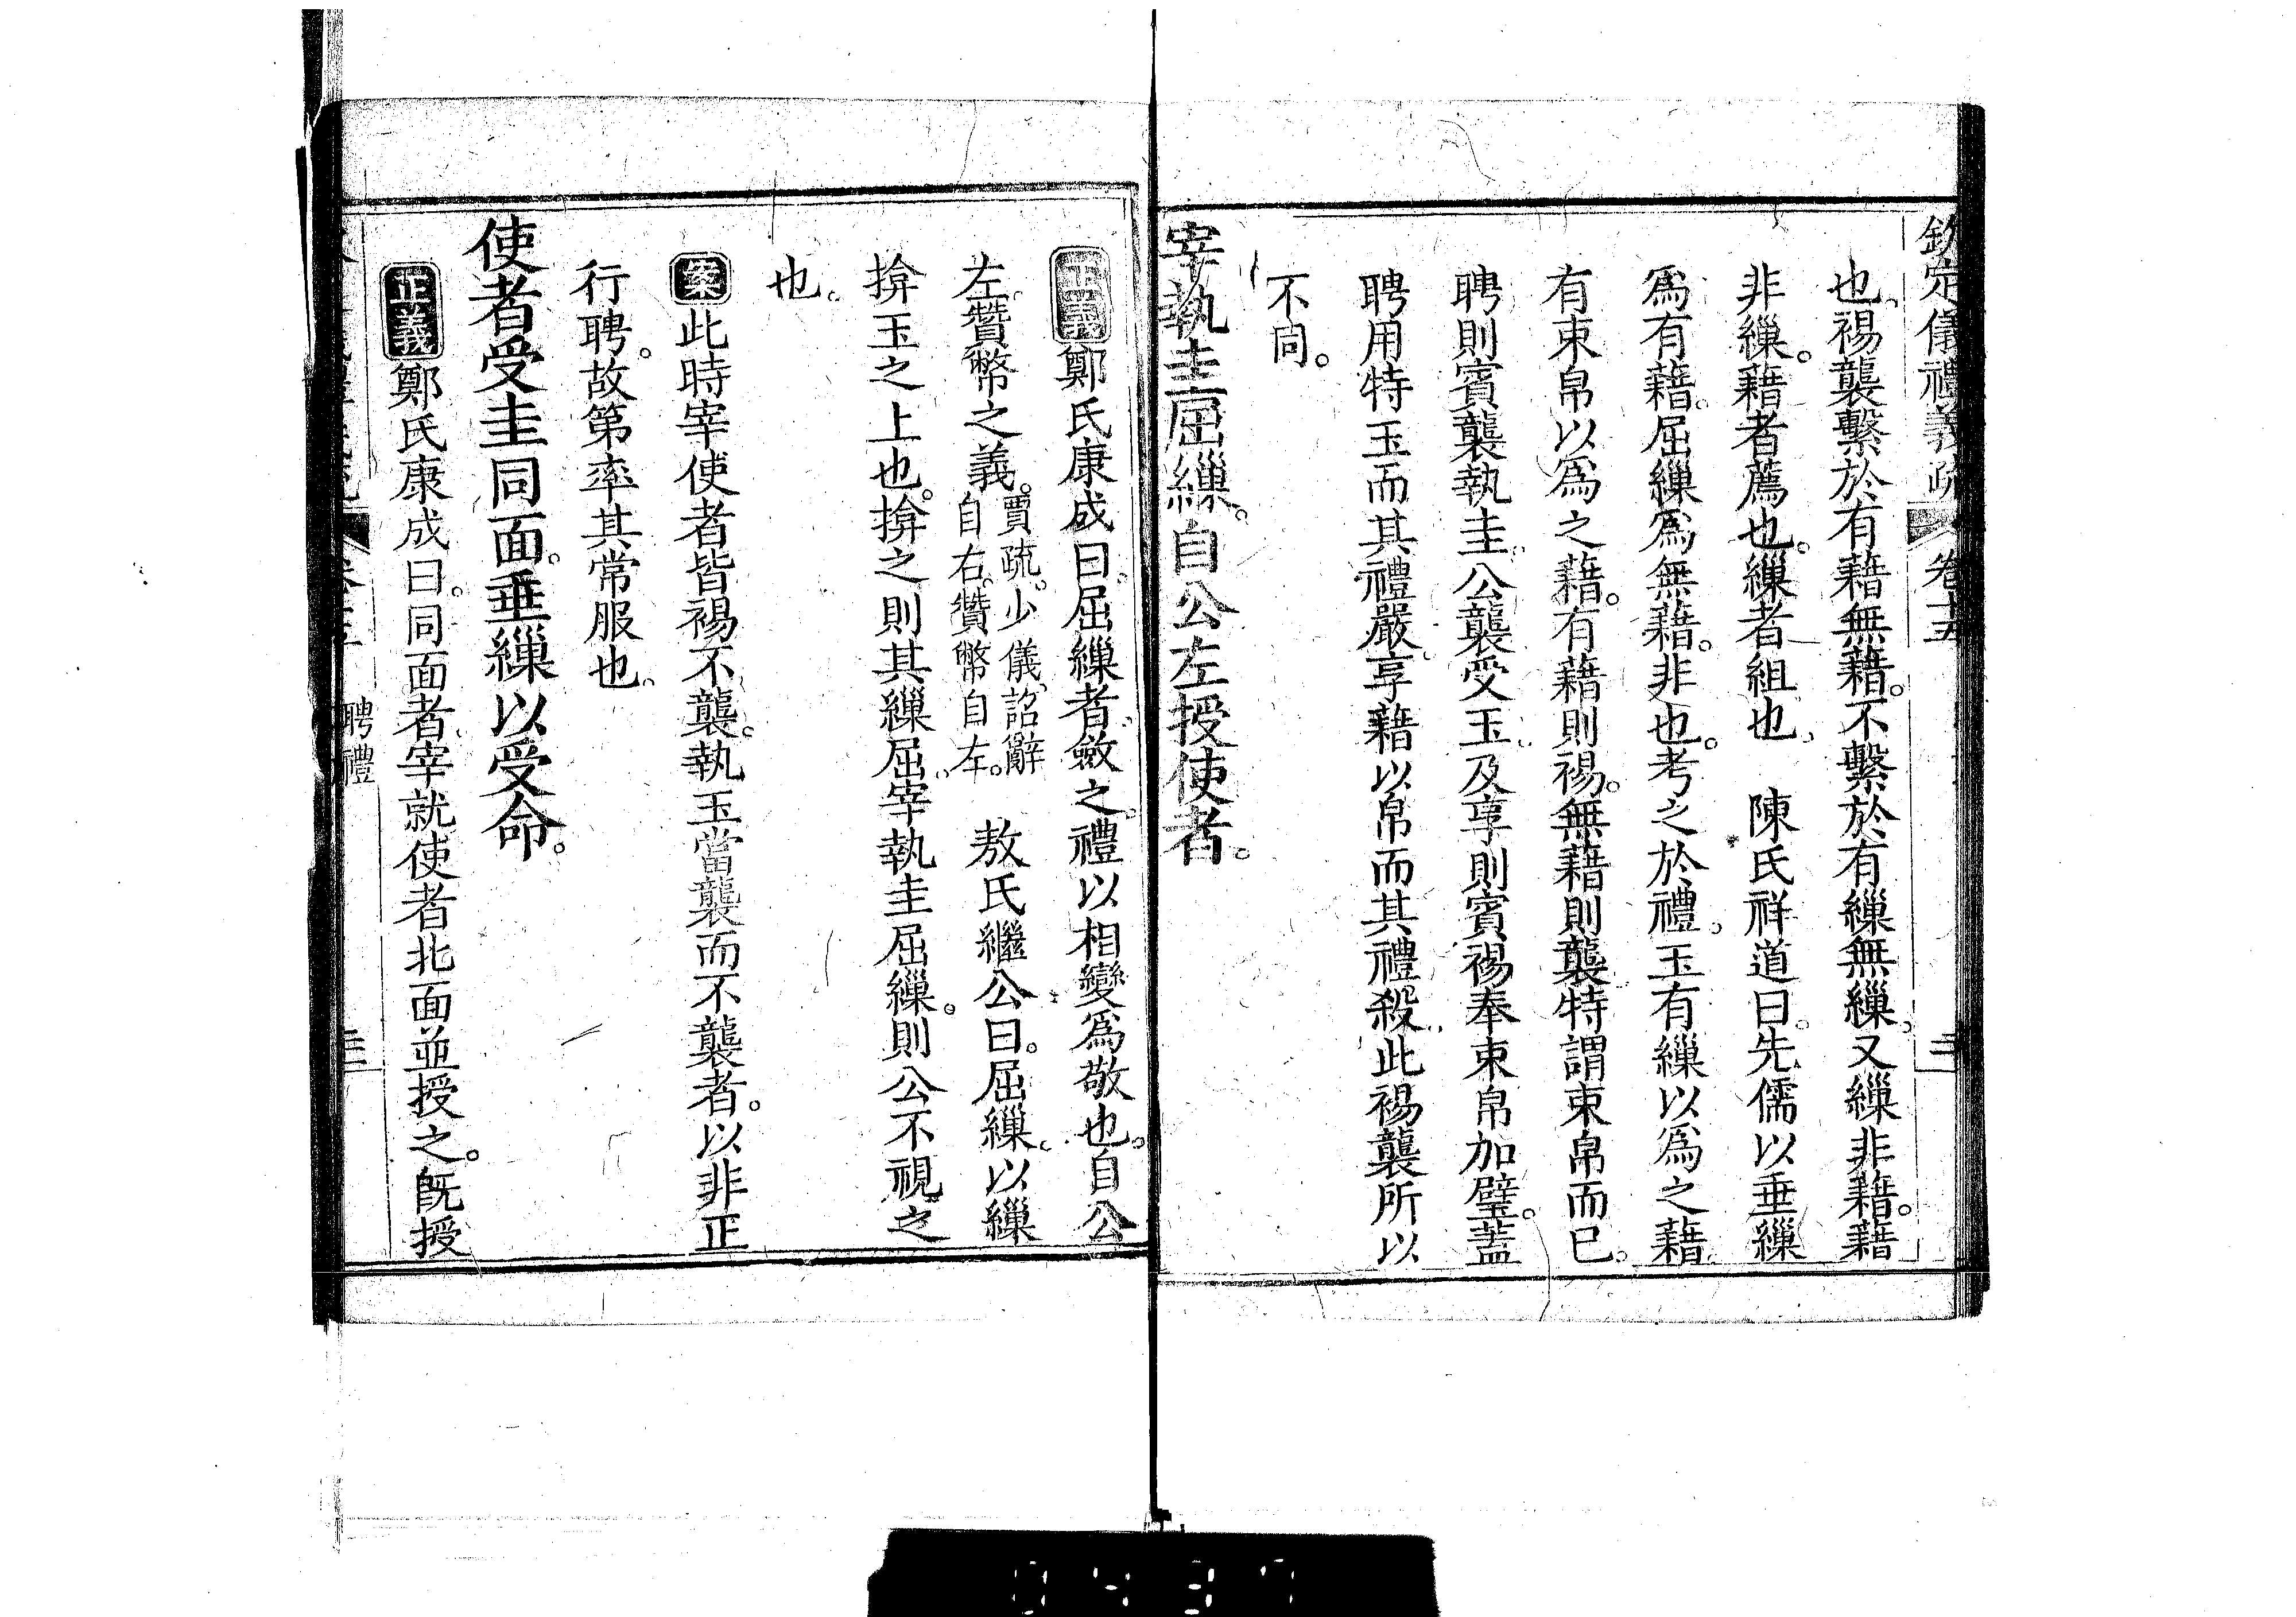 欽定儀禮義疏 卷十五
也裼襲繫於有藉無藉。不繫於有繅無繅。又繅非藉。藉
非繅。藉者薦也。繅者組也 陳氏祥道曰。先儒以垂繅
爲有藉。屈繅爲無藉。非也。考之於禮。玉有繅以爲之藉。
有束帛以爲之藉。有藉則裼。無藉則襲。特謂束帛而已。
聘則賓襲執圭。公襲受玉。及享則賓裼奉束帛加璧。蓋
聘用特玉而其禮嚴。享藉以帛而其禮殺。此裼襲所以
不同。
宰執圭屈繅。自公左授使者。
正義鄭氏康成曰。屈繅者。斂之。禮以相變爲敬也。自公
左。贊幣之義。賈疏。少儀。詔辭自右。贊幣自左。 敖氏繼公曰。屈繅。以繅
揜玉之上也。揜之則其繅屈。宰執圭屈繅。則公不視之
也。
案此時宰使者皆裼不襲。執玉當襲而不襲者。以非正
行聘。故第率其常服也。
使者受圭同面。垂繅以受命。
正義鄭氏康成曰。同面者。宰就使者北面並授之。旣授
聘禮